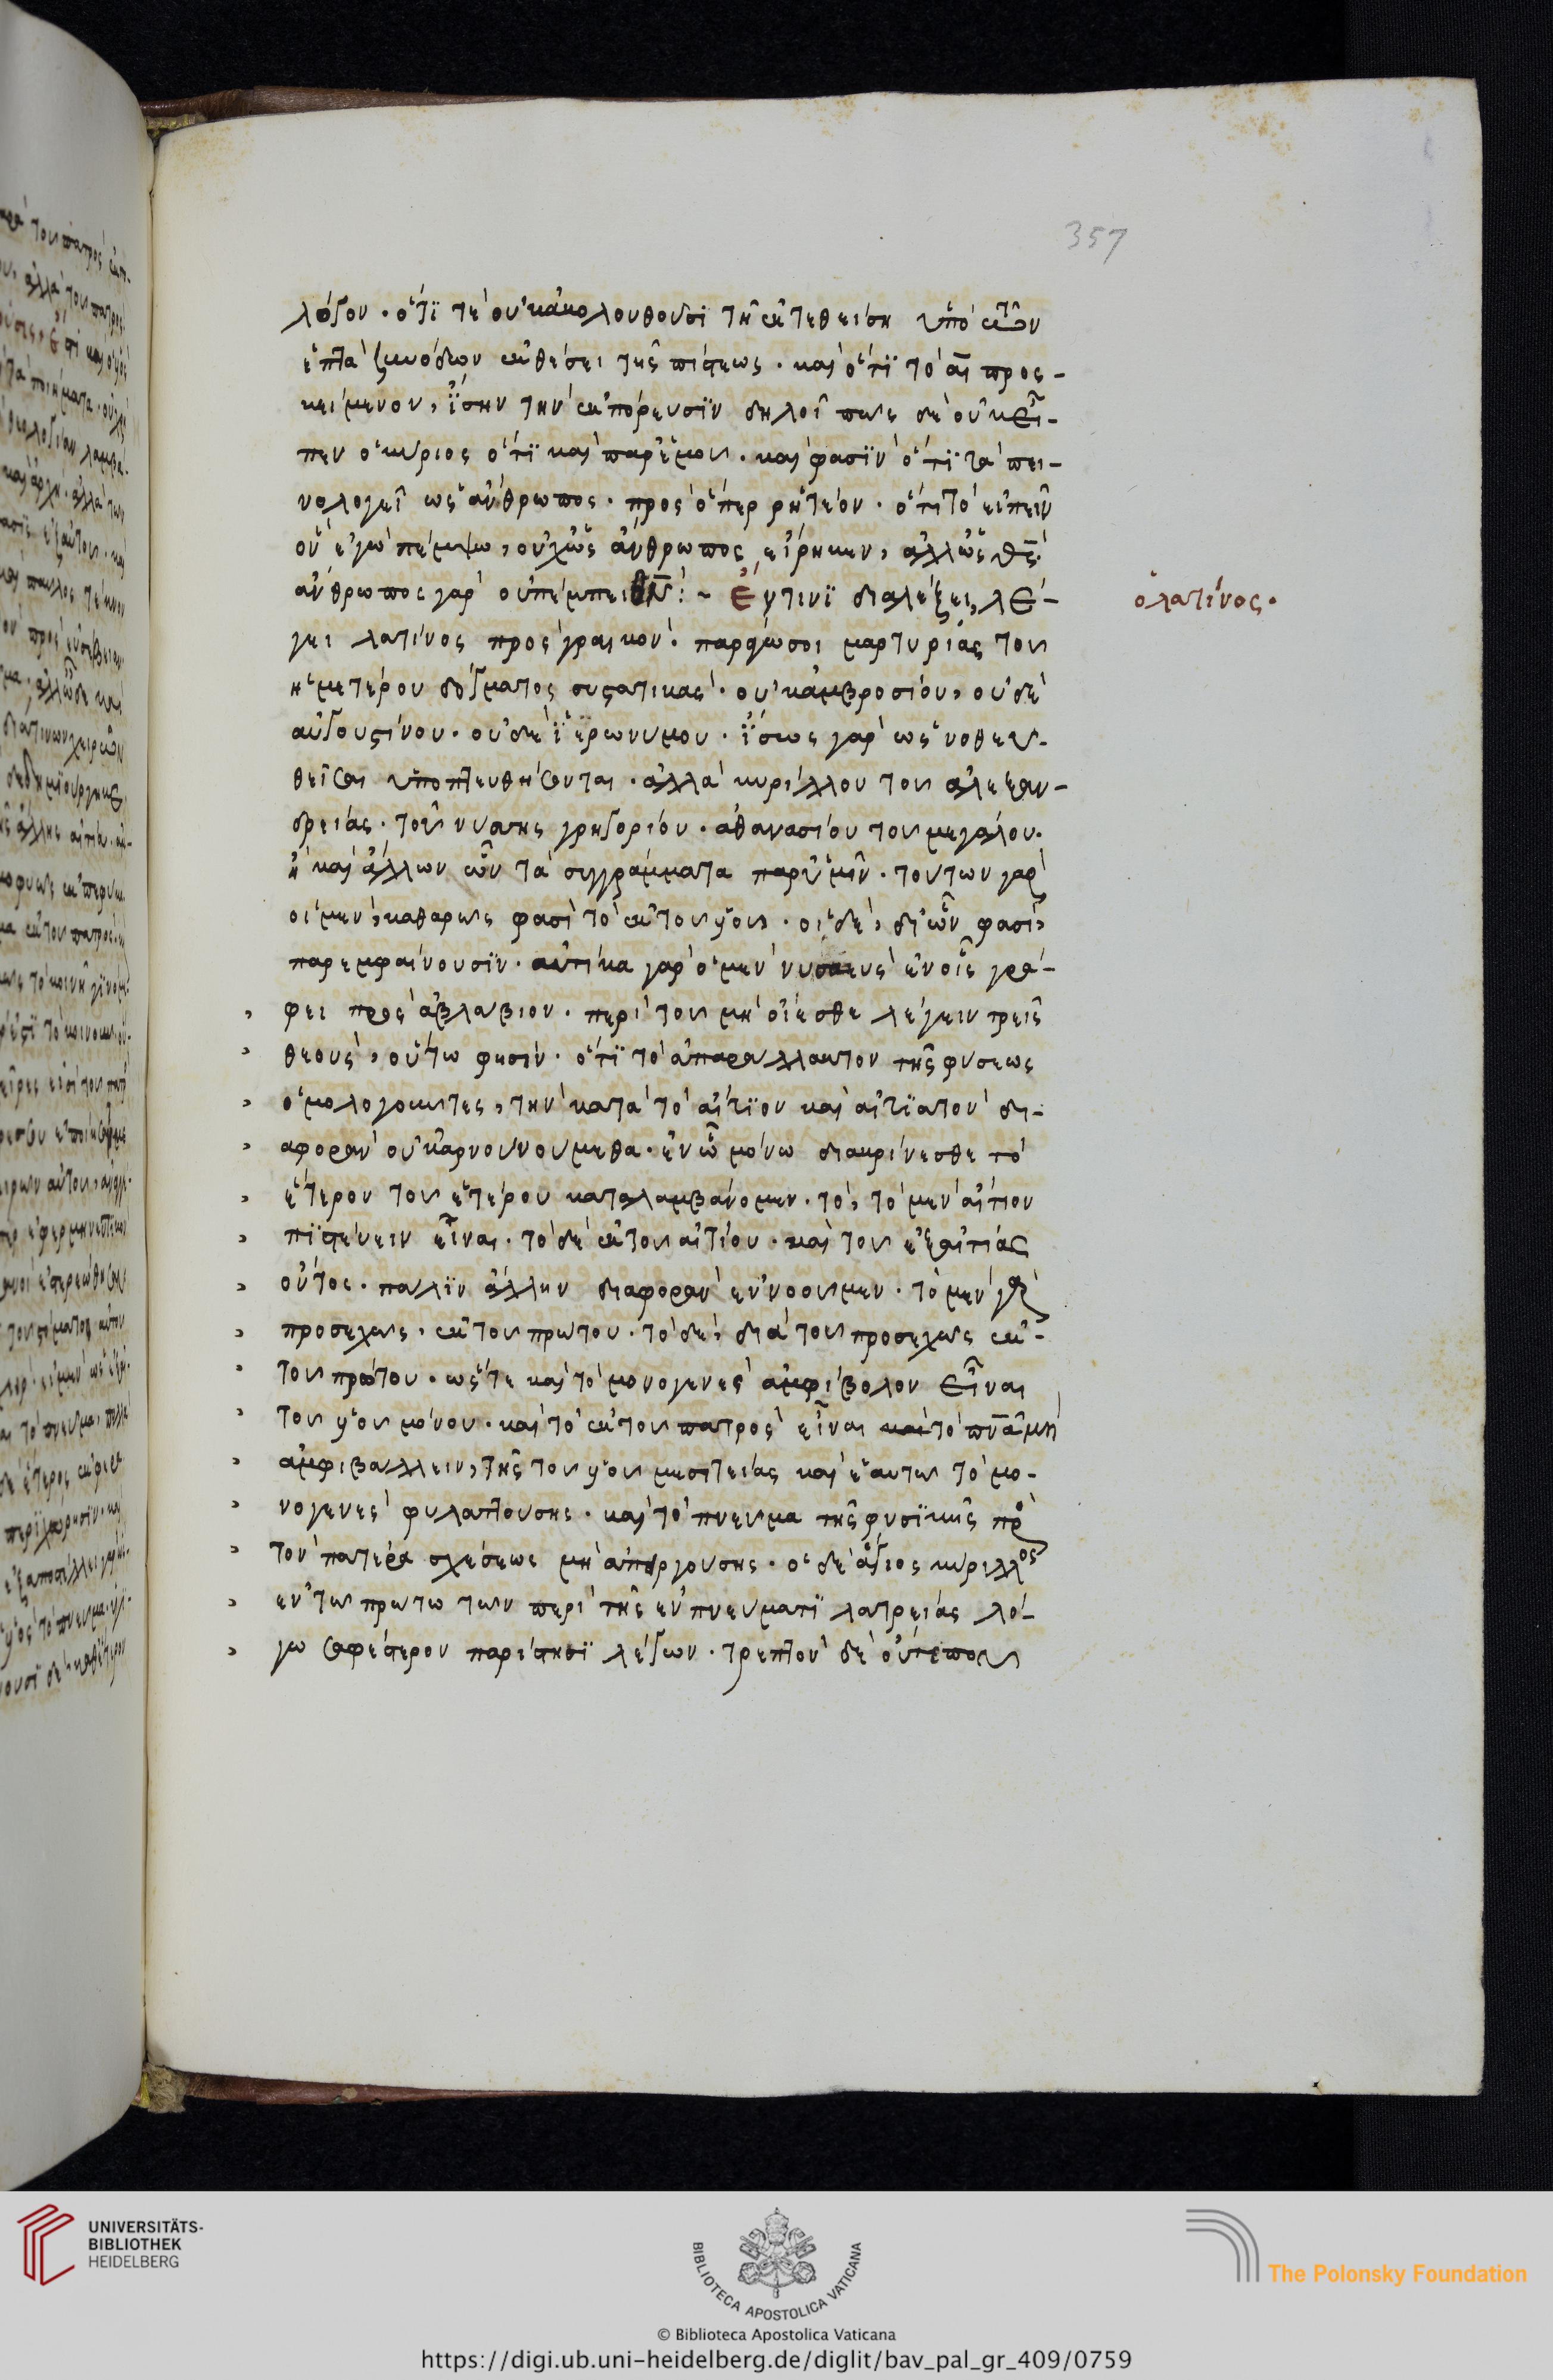 357
λόγον · ὅτι τὲ οὐκ ἀκολουθοῦσι τῆ ἐκτεθείση ὑπὸ τῶν
ἑπτὰ συνόδων ἐκθέσει τῆς πίστεως · καὶ ὅτι τὸ καὶ προσ-
κείμενον, ἴσην τὴν ἐκπόρευσϊν δηλοῖ πῶς δὲ οὐκ εἶ-
πεν ὁ κύριος ὅτϊ καὶ παρ' ἐμοῦ · καὶ φασϊν ὅτϊ ταπει-
νολογεῖ ὡς ἄνθρωπος · πρὸς ὅπερ ῥητέον · ὅτι τὸ εἰπεῖν
ὃν ἐγὼ πέμψω, οὐχ ὡς ἄνθρωπος εἴρηκεν, ἀλλ' ὡς θς̅
ἄνθρωπος γὰρ οὐ πέμπει θν̅ : ~ Ἐν τινϊ διαλέξει, λέ-
γει λατίνος πρὸς γραικόν · παρά σοι μαρτυρίας τοῦ
ἡμετέρου δόγματος συστατικάς · οὐκ ἀμβροσίου, οὐδὲ
αὐγουστίνου · οὐδὲ ϊερωνύμου · ἴσως γὰρ ὡς νοθευ-
θεῖσαι ὑποπτευθήσονται · ἀλλὰ κυρίλλου τοῦ ἀλεξαν-
δρείας · τοῦ νύσσης γρηγορίου · ἀθανασίου τοῦ μεγάλου ·
ἢ καὶ ἄλλων ὧν τὰ συγγράμματα παρ' ὑμῖν · τούτων γὰρ
οἱ μὲν, καθαρῶς φασὶ τὸ ἐκ τοῦ υἱοῦ · οἱ δὲ, δι' ὧν φασὶ,
παρεμφαίνουσϊν · αὐτίκα γὰρ ὁ μὲν νύσσης ἐν οἷς γρά-
φει πρὸς ἀβλάβιον · περὶ τοῦ μὴ οἴεσθε λέγειν τρεῖς
θεοὺς, οὕτω φησὶν · ὅτϊ τὸ ἀπαράλλακτον τῆς φύσεως
ὁμολογοῦντες, τὴν κατὰ τὸ αἴτϊον καὶ αἰτϊατὸν δι-
αφορὰν οὐκ ἀρνούνουμεθα · ἐν ὧ μόνω διακρίνεσθε τὸ
ἕτερον τοῦ ἑτέρου καταλαμβάνομεν · τὸ, τὸ μὲν αἴτιον
πϊστεύειν εἶναι · τὸ δὲ ἐκ τοῦ αἰτίου · καὶ τοῦ ἐξ αἰτίας
οὗτος · πάλϊν ἄλλην διαφορὰν ἐννοοῦμεν · τὸ μὲν γὰρ
προσεχῶς, ἐκ τοῦ πρώτου · τὸ δὲ, διὰ τοῦ προσεχῶς ἐκ
τοῦ πρώτου · ὥστε καὶ τὸ μονογενὲς ἀμφίβολον εἶναι
τοῦ υἱοῦ μόνου · καὶ τὸ ἐκ τοῦ πατρὸς εἶναι καὶ τὸ πνα̅ μὴ
ἀμφιβάλλειν, τῆς τοῦ υἱοῦ μεσιτείας καὶ ἑαυτῶ τὸ μο-
νογενὲς φυλαττούσης · καὶ τὸ πνεῦμα τῆς φυσϊκῆς πρὸς
τὸν πατέρα σχέσεως μὴ ἀπειργούσης · ὁ δὲ ἅγιος κύριλλος
ἐν τῶ πρώτω τῶν περὶ τῆς ἐν πνεύματϊ λατρείας λό-
γω σαφέστερον παρίστησϊ λέγων · τρεπτὸν δὲ οὔτε που
ὁ λατίνος ·
UNIVERSITÄTS-
BIBLIOTHEK
HEIDELBERG
BIBLIOTECA APOSTOLICA VATICANA
The Polonsky Foundation
© Biblioteca Apostolica Vaticana
https://digi.ub.uni-heidelberg.de/diglit/bav_pal_gr_409/0759